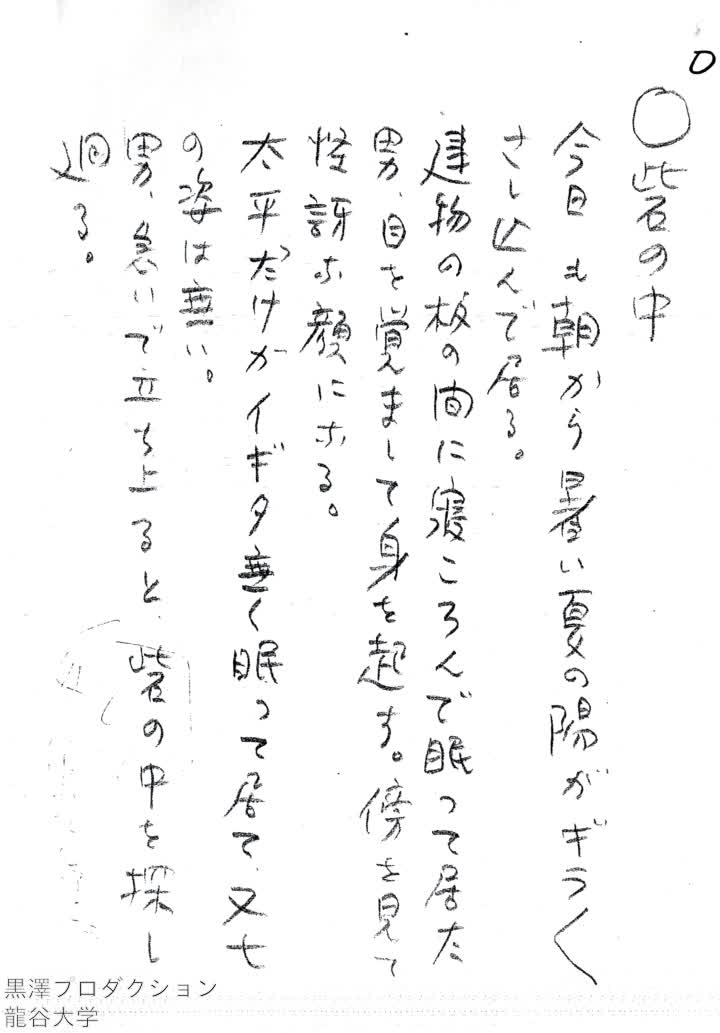 D
○砦の中
今日も朝から暑い夏の陽がギラ〱
さし込んで居る。
建物の板の間に寝ころんで眠って居た
男、目を覚まして身を起す。傍を見て
怪訝な顔になる。
太平だけがイギタ無く眠って居て、又七
の姿は無い。
男、急いで立ち上ると、砦の中を探し
廻る。
黒澤プロダクション
龍谷大学